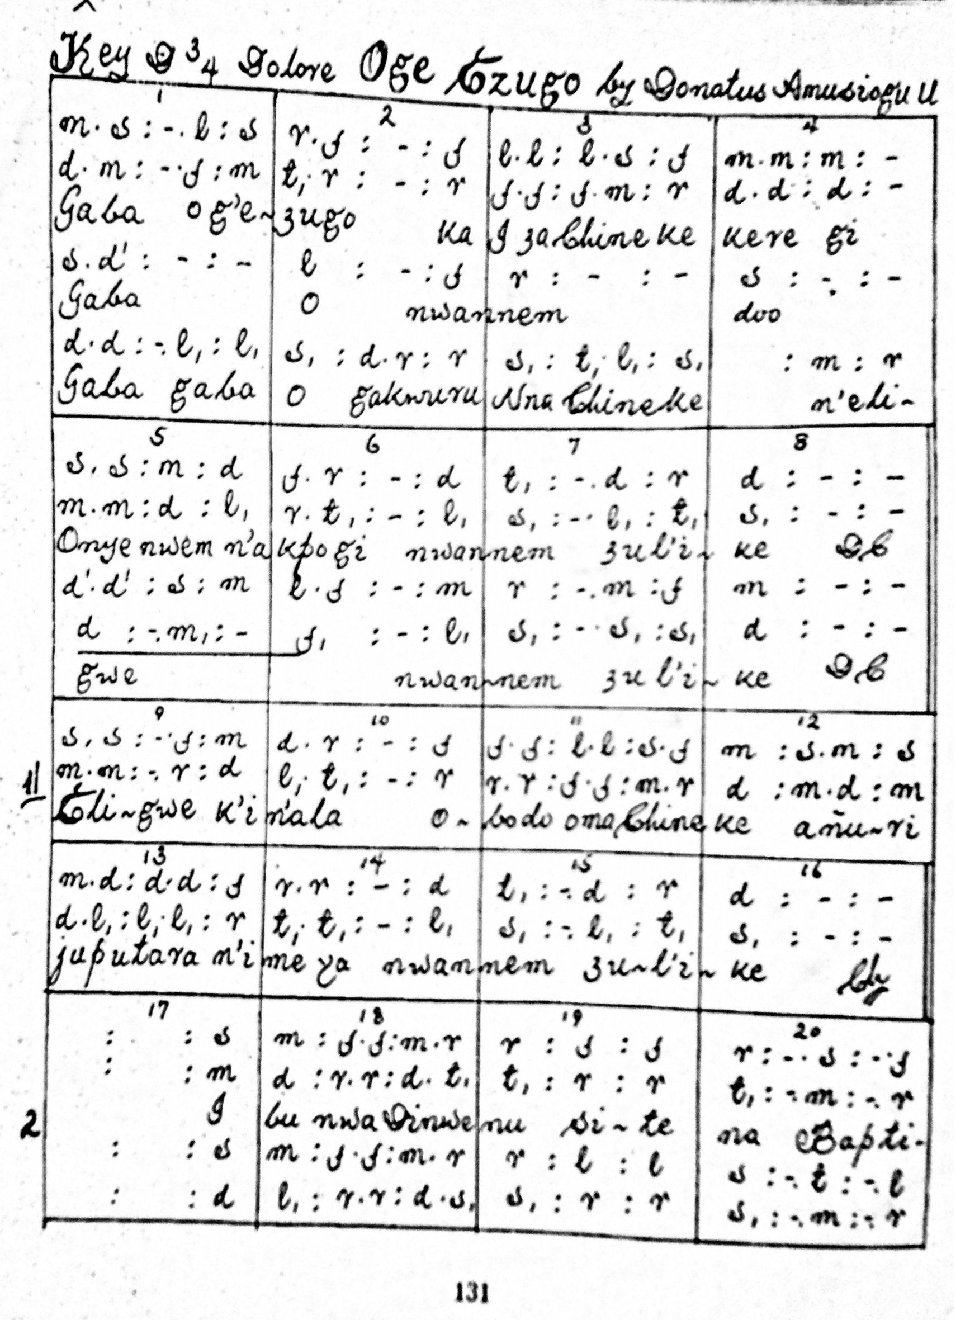 Key D 3/4 Dolore Oge Ezugo by Donatus Amusiogu U
1 2 3 4
m. s : -. l : s | r. f : - : f | l. l : l. s : f | m. m : m : -
d. m : -. f : m | t,. r : - : r | f. f : f. m : r | d. d : d : -
Gaba og'e~zugo ka I za Chineke kere gi
s. d' : - : - | l : - : f | r : - : - | s : - : -
Gaba O nwannem doo
d. d : -. l, : l, | s, : d. r : r | s, : t,. l, : s, | : m : r
Gaba gaba O gakwuru Nna Chineke n'eli-
5 6 7 8
s. s : m : d | f. r : - : d | t, : -. d : r | d : - : -
m. m : d : l, | r. t, : - : l, | s, : -. l, : t, | s, : - : -
Onye nwem n'akpo gi nwannem zu l'i~ke DC
d'. d' : s : m | l. f : - : m | r : -. m : f | m : - : -
d : -. m, : - | f, : - : l, | s, : -. s, : s, | d : - : -
gwe nwan~nem zu l'i~ke DC
9 10 11 12
s. s : -. f : m | d. r : - : f | f. f : l. l : s. f | m : s. m : s
1 m. m : -. r : d | l,. t, : - : r | r. r : f. f : m. r | d : m. d : m
Eli~gwe k'i n'ala o~bodo oma Chineke añu~ri
13 14 15 16
m. d : d. d : f | r. r : - : d | t, : -. d : r | d : - : -
d. l, : l,. l, : r | t,. t, : - : l, | s, : -. l, : t, | s, : - : -
juputara n'ime ya nwannem zu~l'i~ke
17 18 19 20
: : s | m : f. f : m. r | r : f : f | r : -. s : -. f
: : m | d : r. r : d. t, | t, : r : r | t, : -. m : -. r
2 I bu nwa Dinwenu si~te na Bapti-
: : s | m : f. f : m. r | r : l : l | s : -. t : -. l
: : d | l, : r. r : d. s, | s, : r : r | s, : -. m : -. r
131